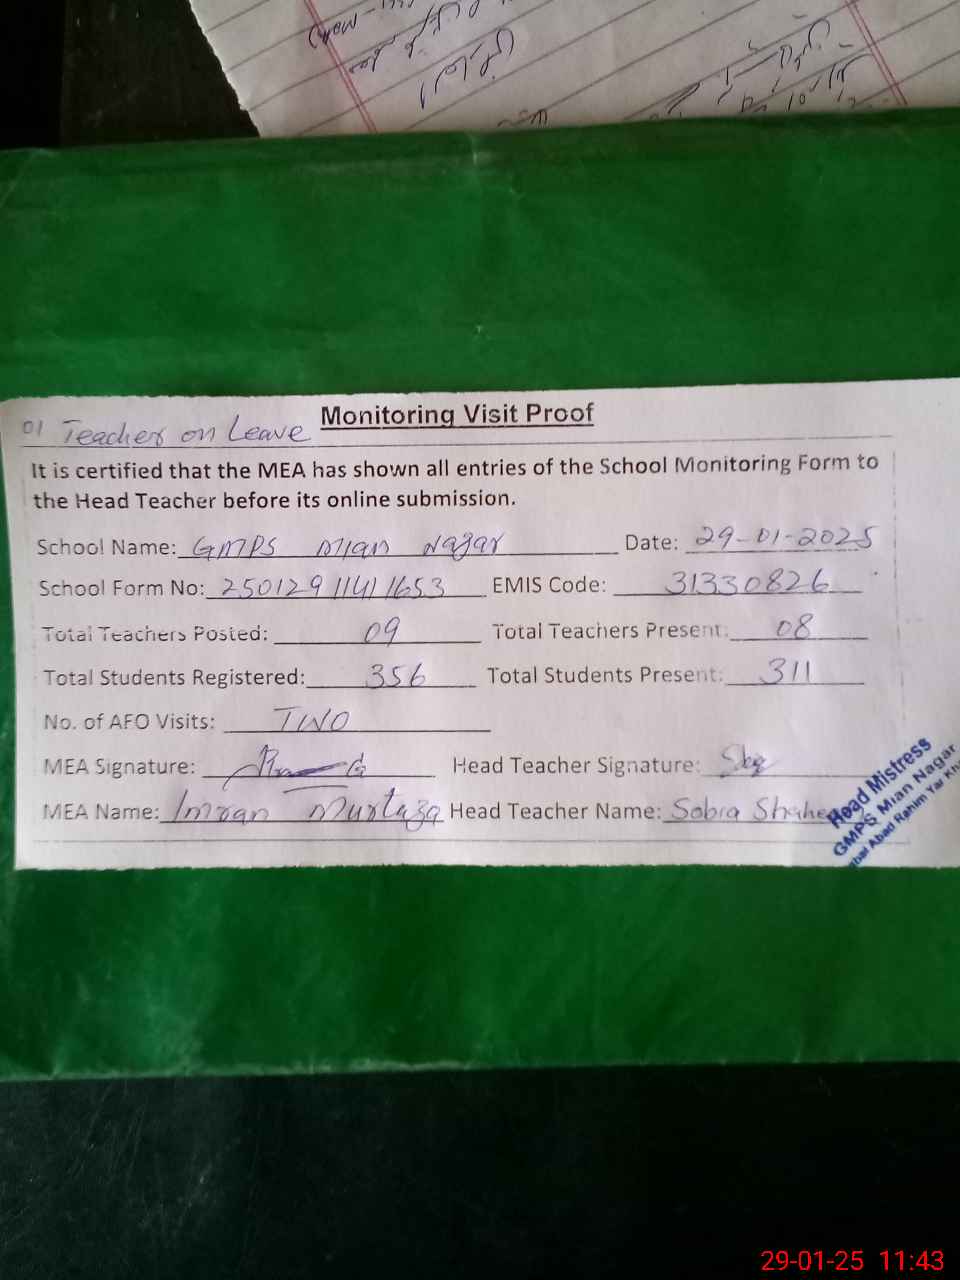 01 Teacher on Leave
Monitoring Visit Proof
It is certified that the MEA has shown all entries of the School Monitoring Form to
the Head Teacher before its online submission.
School Name: GMPS Mian Nagar Date: 29-01-2025
School Form No: 25012911411653 EMIS Code: 31330826
Total Teachers Posted: 09 Total Teachers Present: 08
Total Students Registered: 356 Total Students Present: 311
No. of AFO Visits: TWO
MEA Signature: Head Teacher Signature:
MEA Name: Imran Murtaza Head Teacher Name: Sobia Shahe
Head Mistress
GMPS Mian Nagar
Abad Rahim Yar Kh
29-01-25 11:43